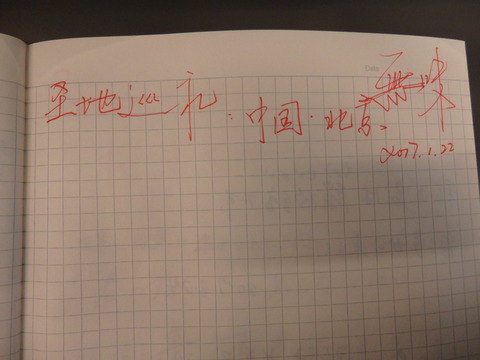 圣地巡礼·中国·北京。
2017.1.22